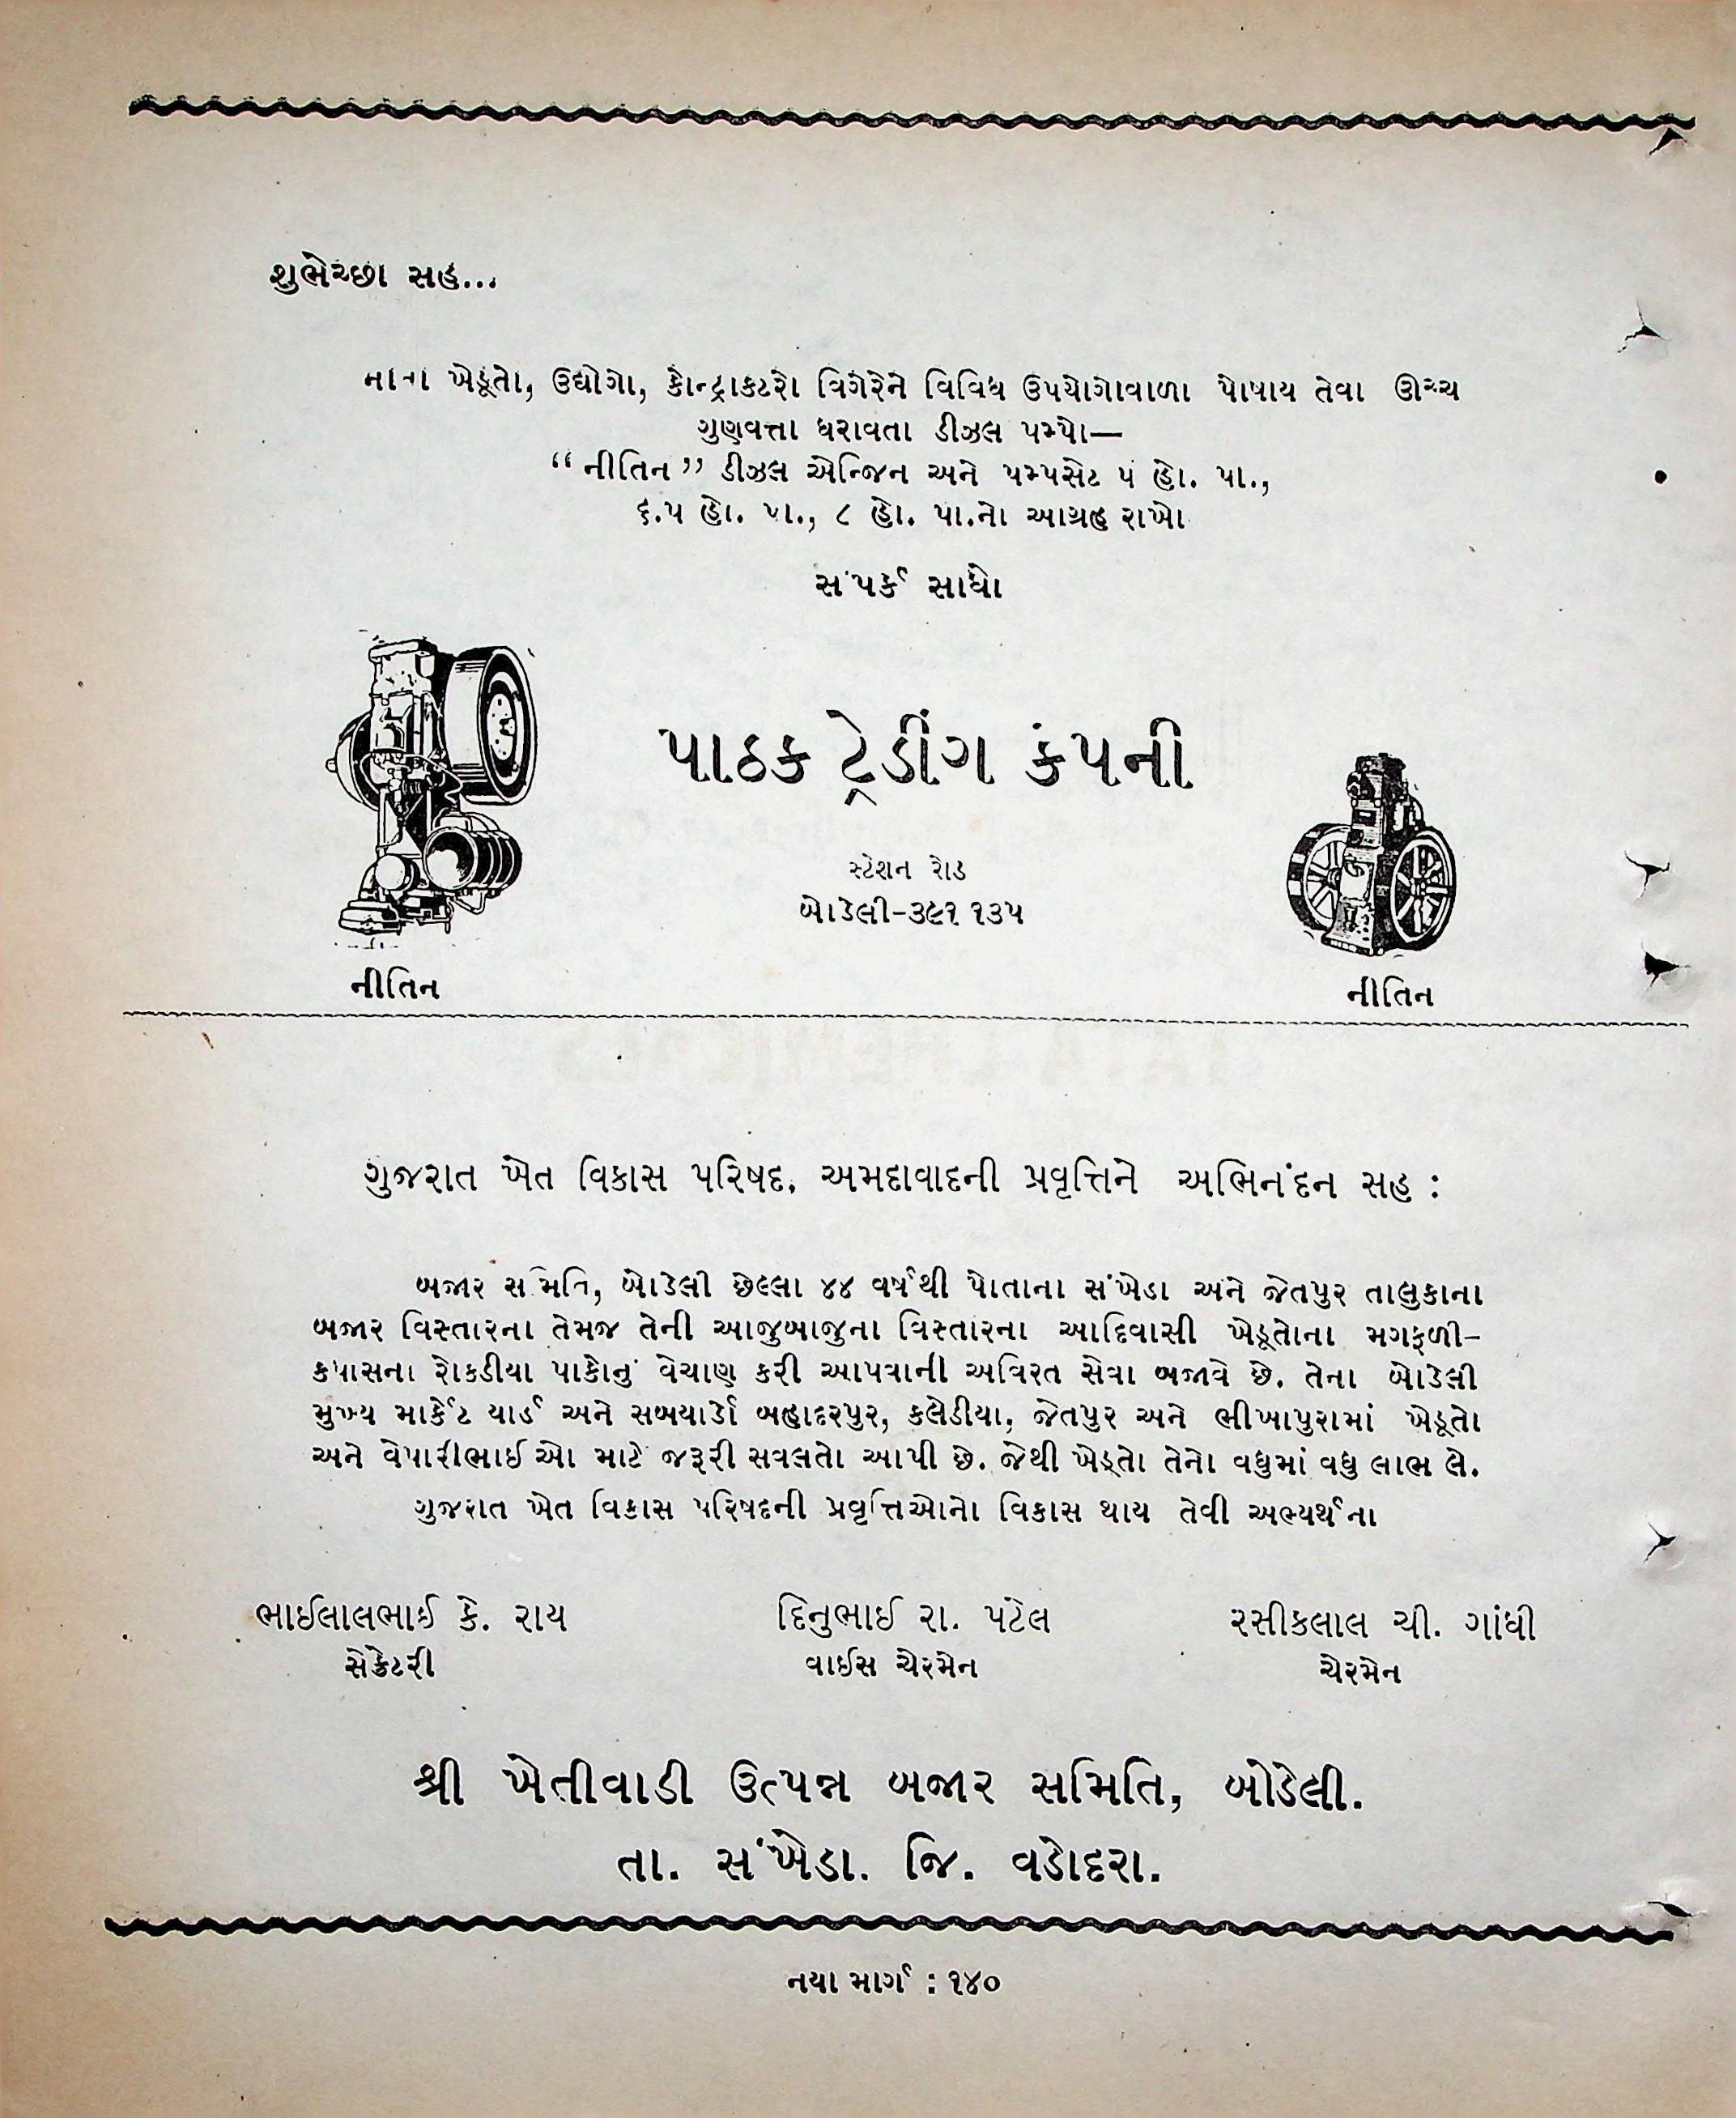 શુભેચ્છા સહ...
નાના ખેડૂતો, ઉદ્યોગો, કોન્ટ્રાક્ટરો વિગેરેને વિવિધ ઉપયોગોવાળા પોષાય તેવા ઊચ્ચ
ગુણવત્તા ધરાવતા ડીઝલ પમ્પો—
“નીતિન” ડીઝલ એન્જિન અને પમ્પસેટ ૫ હો. પા.,
૬.૫ હો. પા., ૮ હો. પા.નો આગ્રહ રાખો
સંપર્ક સાધો
પાઠક ટ્રેડીંગ કંપની
સ્ટેશન રોડ
બોડેલી-૩૯૧ ૧૩૫
નીતિન
નીતિન
ગુજરાત ખેત વિકાસ પરિષદ. અમદાવાદની પ્રવૃત્તિને અભિનંદન સહ :
બજાર સમિતિ, બોડેલી છેલ્લા ૪૪ વર્ષથી પોતાના સંખેડા અને જેતપુર તાલુકાના
બજાર વિસ્તારના તેમજ તેની આજુબાજુના વિસ્તારના આદિવાસી ખેડૂતોના મગફળી-
કપાસના રોકડીયા પાકોનું વેચાણ કરી આપવાની અવિરત સેવા બજાવે છે. તેના બોડેલી
મુખ્ય માર્કેટ યાર્ડ અને સબયાર્ડો બહાદરપુર, કલેડીયા, જેતપુર અને ભીખાપુરામાં ખેડૂતો
અને વેપારીભાઈઓ માટે જરૂરી સવલતો આપી છે. જેથી ખેડૂતો તેનો વધુમાં વધુ લાભ લે.
ગુજરાત ખેત વિકાસ પરિષદની પ્રવૃત્તિઓનો વિકાસ થાય તેવી અભ્યર્થના
ભાઈલાલભાઈ કે. રાય
સેક્રેટરી
દિનુભાઈ રા. પટેલ
વાઈસ ચેરમેન
રસીકલાલ ચી. ગાંધી
ચેરમેન
શ્રી ખેતીવાડી ઉત્પન્ન બજાર સમિતિ, બોડેલી.
તા. સંખેડા. જિ. વડોદરા.
નયા માર્ગ : ૧૪૦